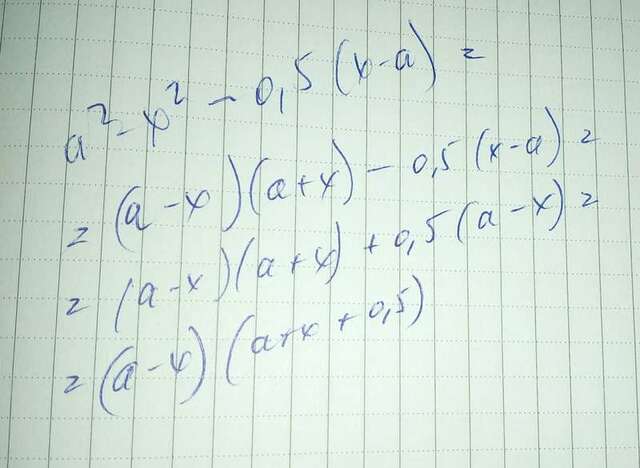 a² - x² - 0,5 (x-a) =
= (a - x) (a+x) - 0,5 (x-a) =
= (a-x) (a+x) + 0,5 (a-x) =
= (a-x) (a+x + 0,5)